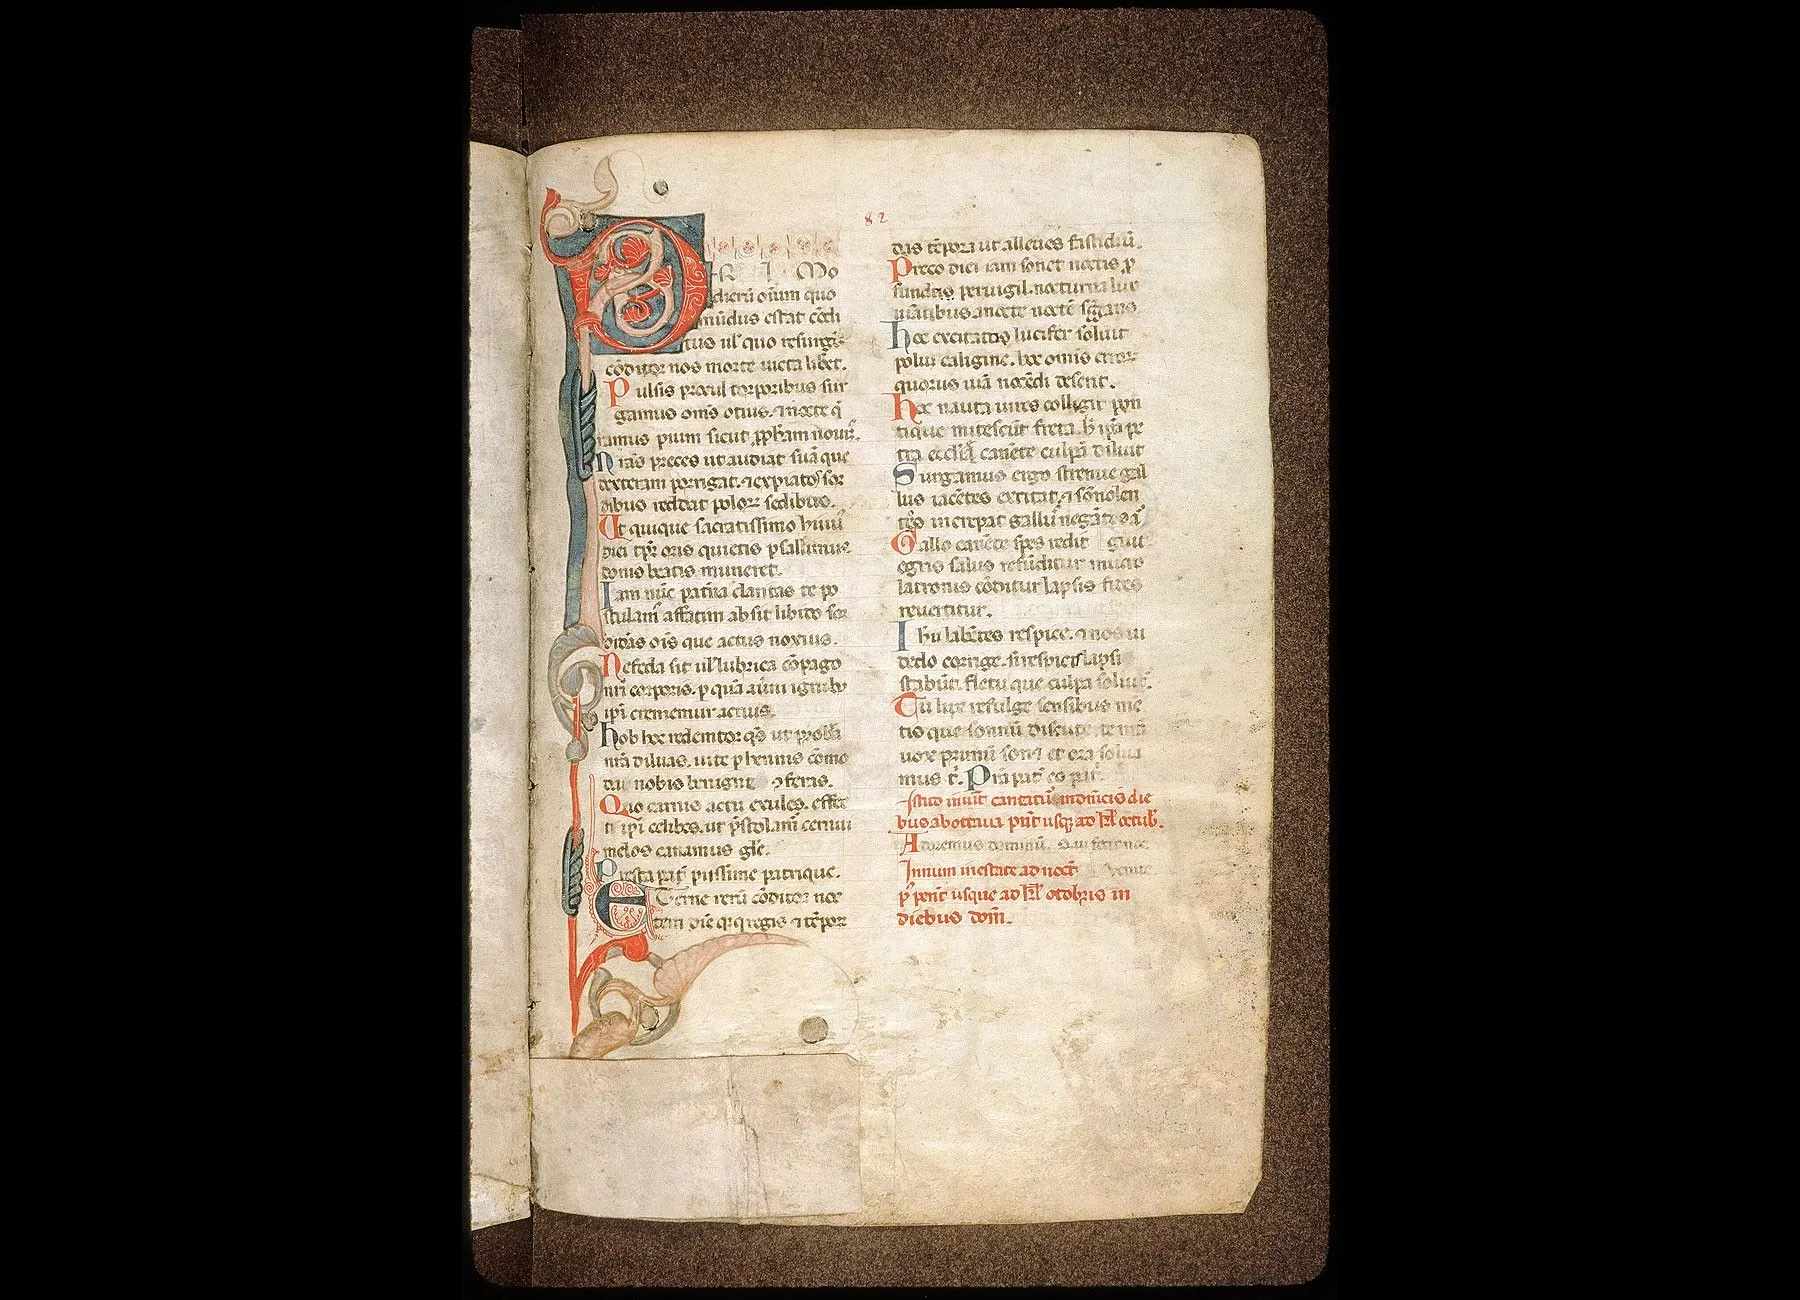 82
PRI Mo
dierū oīum quo
mūdus extat cōdi
tus ul' quo resurgēs
cōditor nos morte uicta liber.
Pulsis procul torporibus sur
gamus omīs otius. ⁊ nocte q̄
ramus pium sicut ꝓph̄am nouim̄.
Nr̄as preces ut audiat suāque
dexteram porrigat. ⁊ expiatos sor
dibus reddat polorꝝ sedibus.
Ut quique sacratissimo huiꝰ
diei tp̄r oris quietis psallimus
donis beatis muneret.
Iam nūc paterna claritas te po
stulam̄ affatim absit libido sor
didās oīs que actus noxius.
Ne feda sit ul' lubrica cōpago
nr̄i corporis. p quā auerni ignibꝰ
ip̄i crememur acrius.
Hob hoc redemtor q̄s ut probr̄a
nr̄a diluas. uite phennis cōmo
da nobis benigne ꝯferas.
Quo carnis actu exules. effec
ti ip̄i celibes. ut p̄stolam̄ cernui
melos canamus gl̄e.
Presta pat̄ piissime patrique.
Eterne rerū cōditor noc
tem diē q̄ q̄ regis ⁊ tēpoꝝ
das tēpora ut alleues fastidiū.
Preco diei iam sonat noctis ꝓ
funde peruigil. nocturna lux
uiātibus. a nocte noctē segregans
Hoc excitatꝰ lucifer soluit
polū caligine. hoc omīs error
quorus uiā nocēdi deserit.
Hoc nauta uires colligit pon
tique mitescūt freta. h̄ ip̄a pe
tra eccl'ia canēte culpā diluit
Surgamus ergo strenue gal
lus iacētes excitat. ⁊ sōnolen
tos increpat gallus negātes ar̄
Gallo canēte spes redit guit
egris salus refūditur mucro
latronis cōditur lapsis fides
reuertitur.
Ihu labētes respice. ⁊ nos ui
dēdo corrige. si respicis lapsi
stabūt. fletu que culpa soluit̄.
Tu lux refulge sensibus mē
tis que sōnū discute. te nr̄a
uox primū sonet et ora solua
mus t̄. Pr̄ia pat̄ eo pat̄
Istud inuit̄ cantatur in dominicis die
bus ab octaua pent̄ usq; ad kl' octub'.
Adoremus dominū. Qui fecit nos.
Innum in estate ad noct̄ Venite
p' pent̄ usque ad kl' otobris in
diebus dom̄.